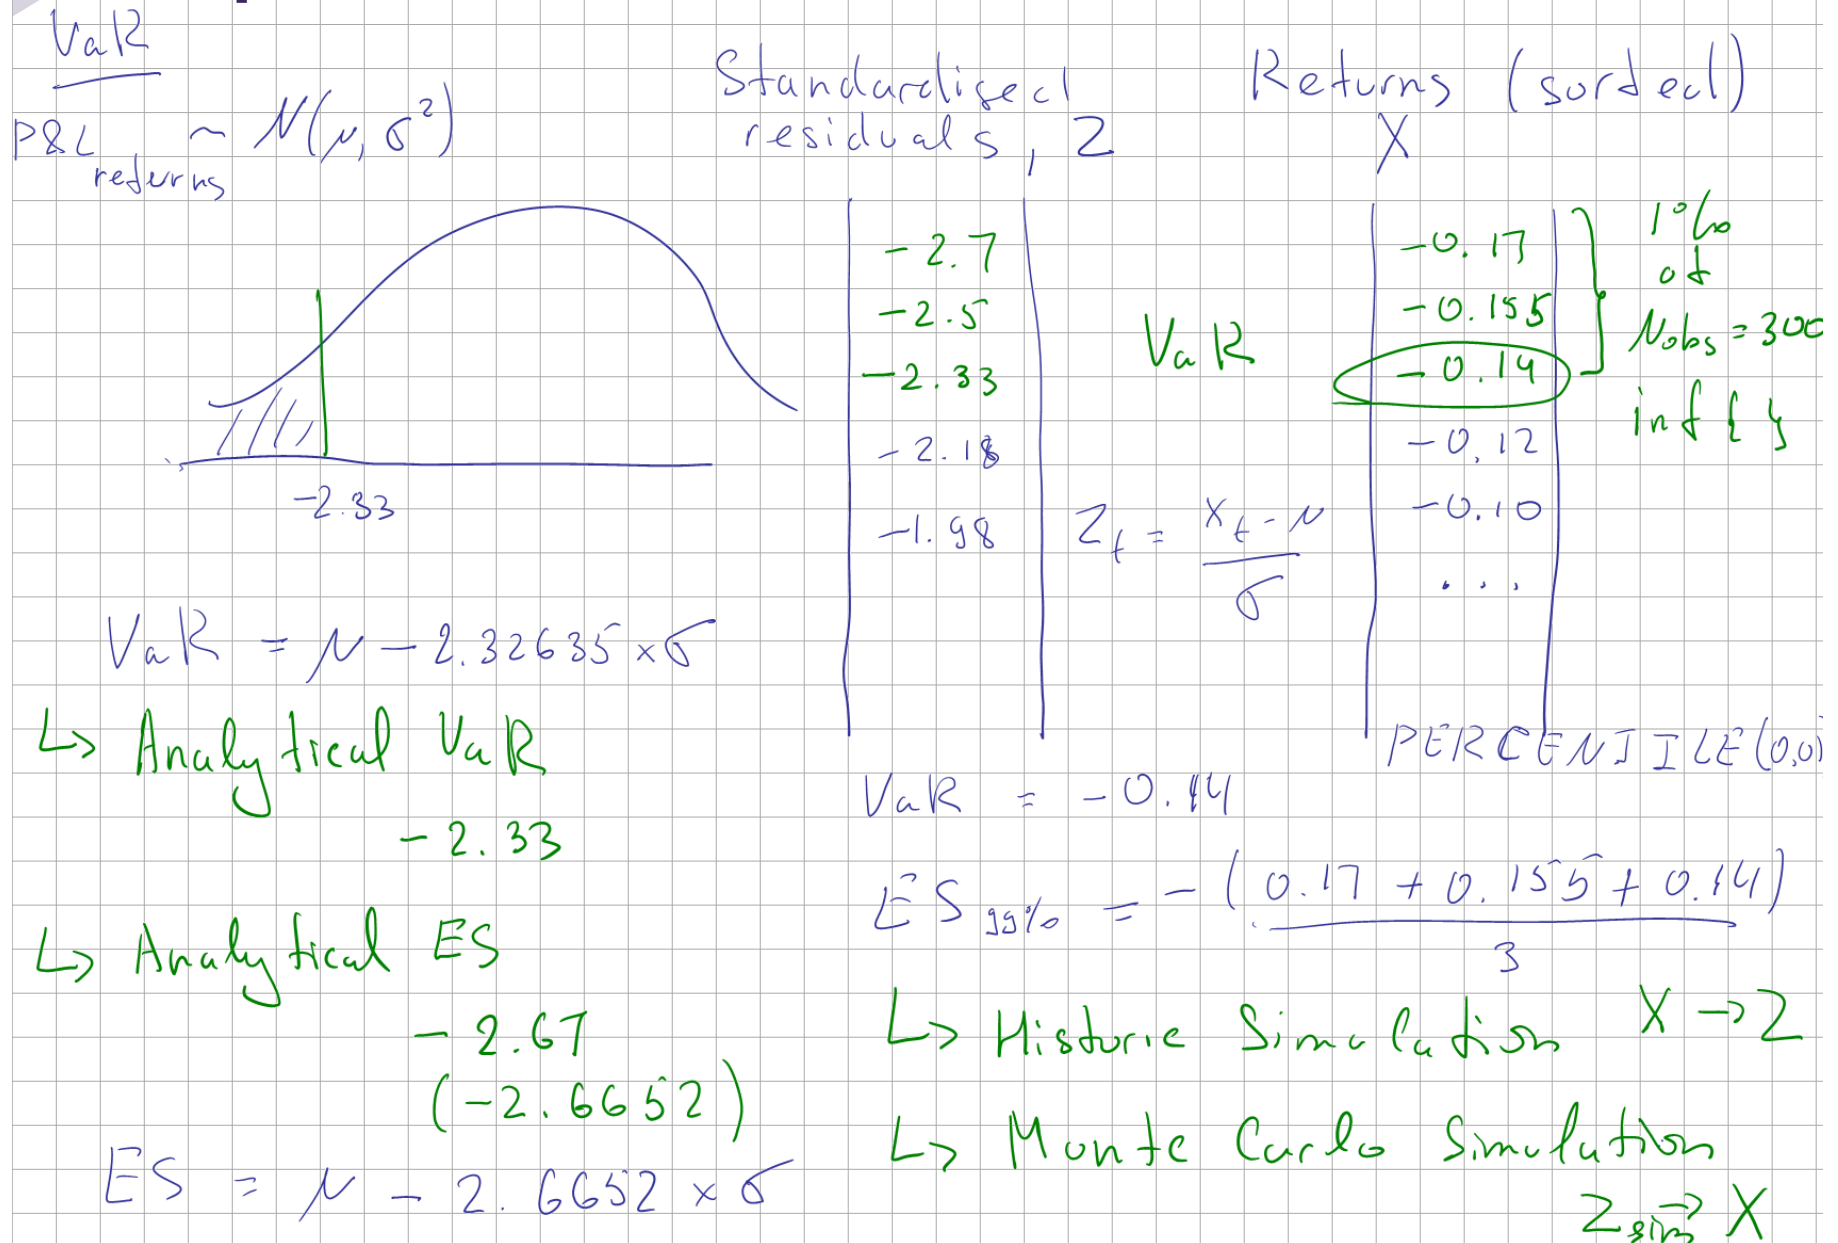 VaR
P&L returns ~ N(μ, σ²)
-2.33
VaR = μ - 2.32635 × σ
↳ Analytical VaR
-2.33
↳ Analytical ES
-2.67
(-2.6652)
ES = μ - 2.6652 × σ
Standardised
residuals, Z
-2.7
-2.5
-2.33
-2.18
-1.98
Z_t = (X_t - μ) / σ
Returns (sorted)
X
-0.17
-0.155
VaR -0.14
-0.12
-0.10
...
1%
of
Nobs = 300
inf { }
PERCENTILE(0,0
VaR = -0.14
ES 99% = -(0.17 + 0.155 + 0.14) / 3
↳ Historic Simulation X → Z
↳ Monte Carlo Simulation
Z sim → X